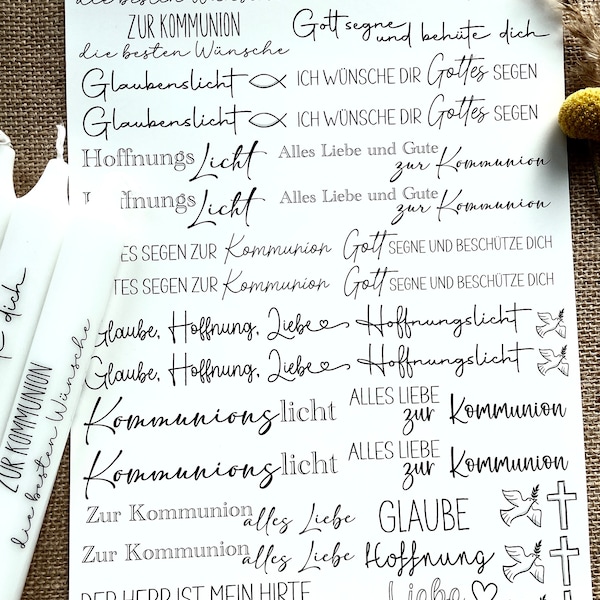 die besten Wünsche
ZUR KOMMUNION Gott segne und behüte dich
die besten Wünsche
Glaubenslicht ICH WÜNSCHE DIR Gottes SEGEN
Glaubenslicht ICH WÜNSCHE DIR Gottes SEGEN
HoffnungsLicht Alles Liebe und Gute zur Kommunion
HoffnungsLicht Alles Liebe und Gute zur Kommunion
TES SEGEN ZUR Kommunion Gott SEGNE UND BESCHÜTZE DICH
TES SEGEN ZUR Kommunion Gott SEGNE UND BESCHÜTZE DICH
Glaube, Hoffnung, Liebe Hoffnungslicht
Glaube, Hoffnung, Liebe Hoffnungslicht
Kommunionslicht ALLES LIEBE zur Kommunion
Kommunionslicht ALLES LIEBE zur Kommunion
Zur Kommunion alles Liebe GLAUBE
Zur Kommunion alles Liebe Hoffnung
DER HERR IST MEIN HIRTE Liebe
dich
ZUR KOMMUNION
die besten Wünsche